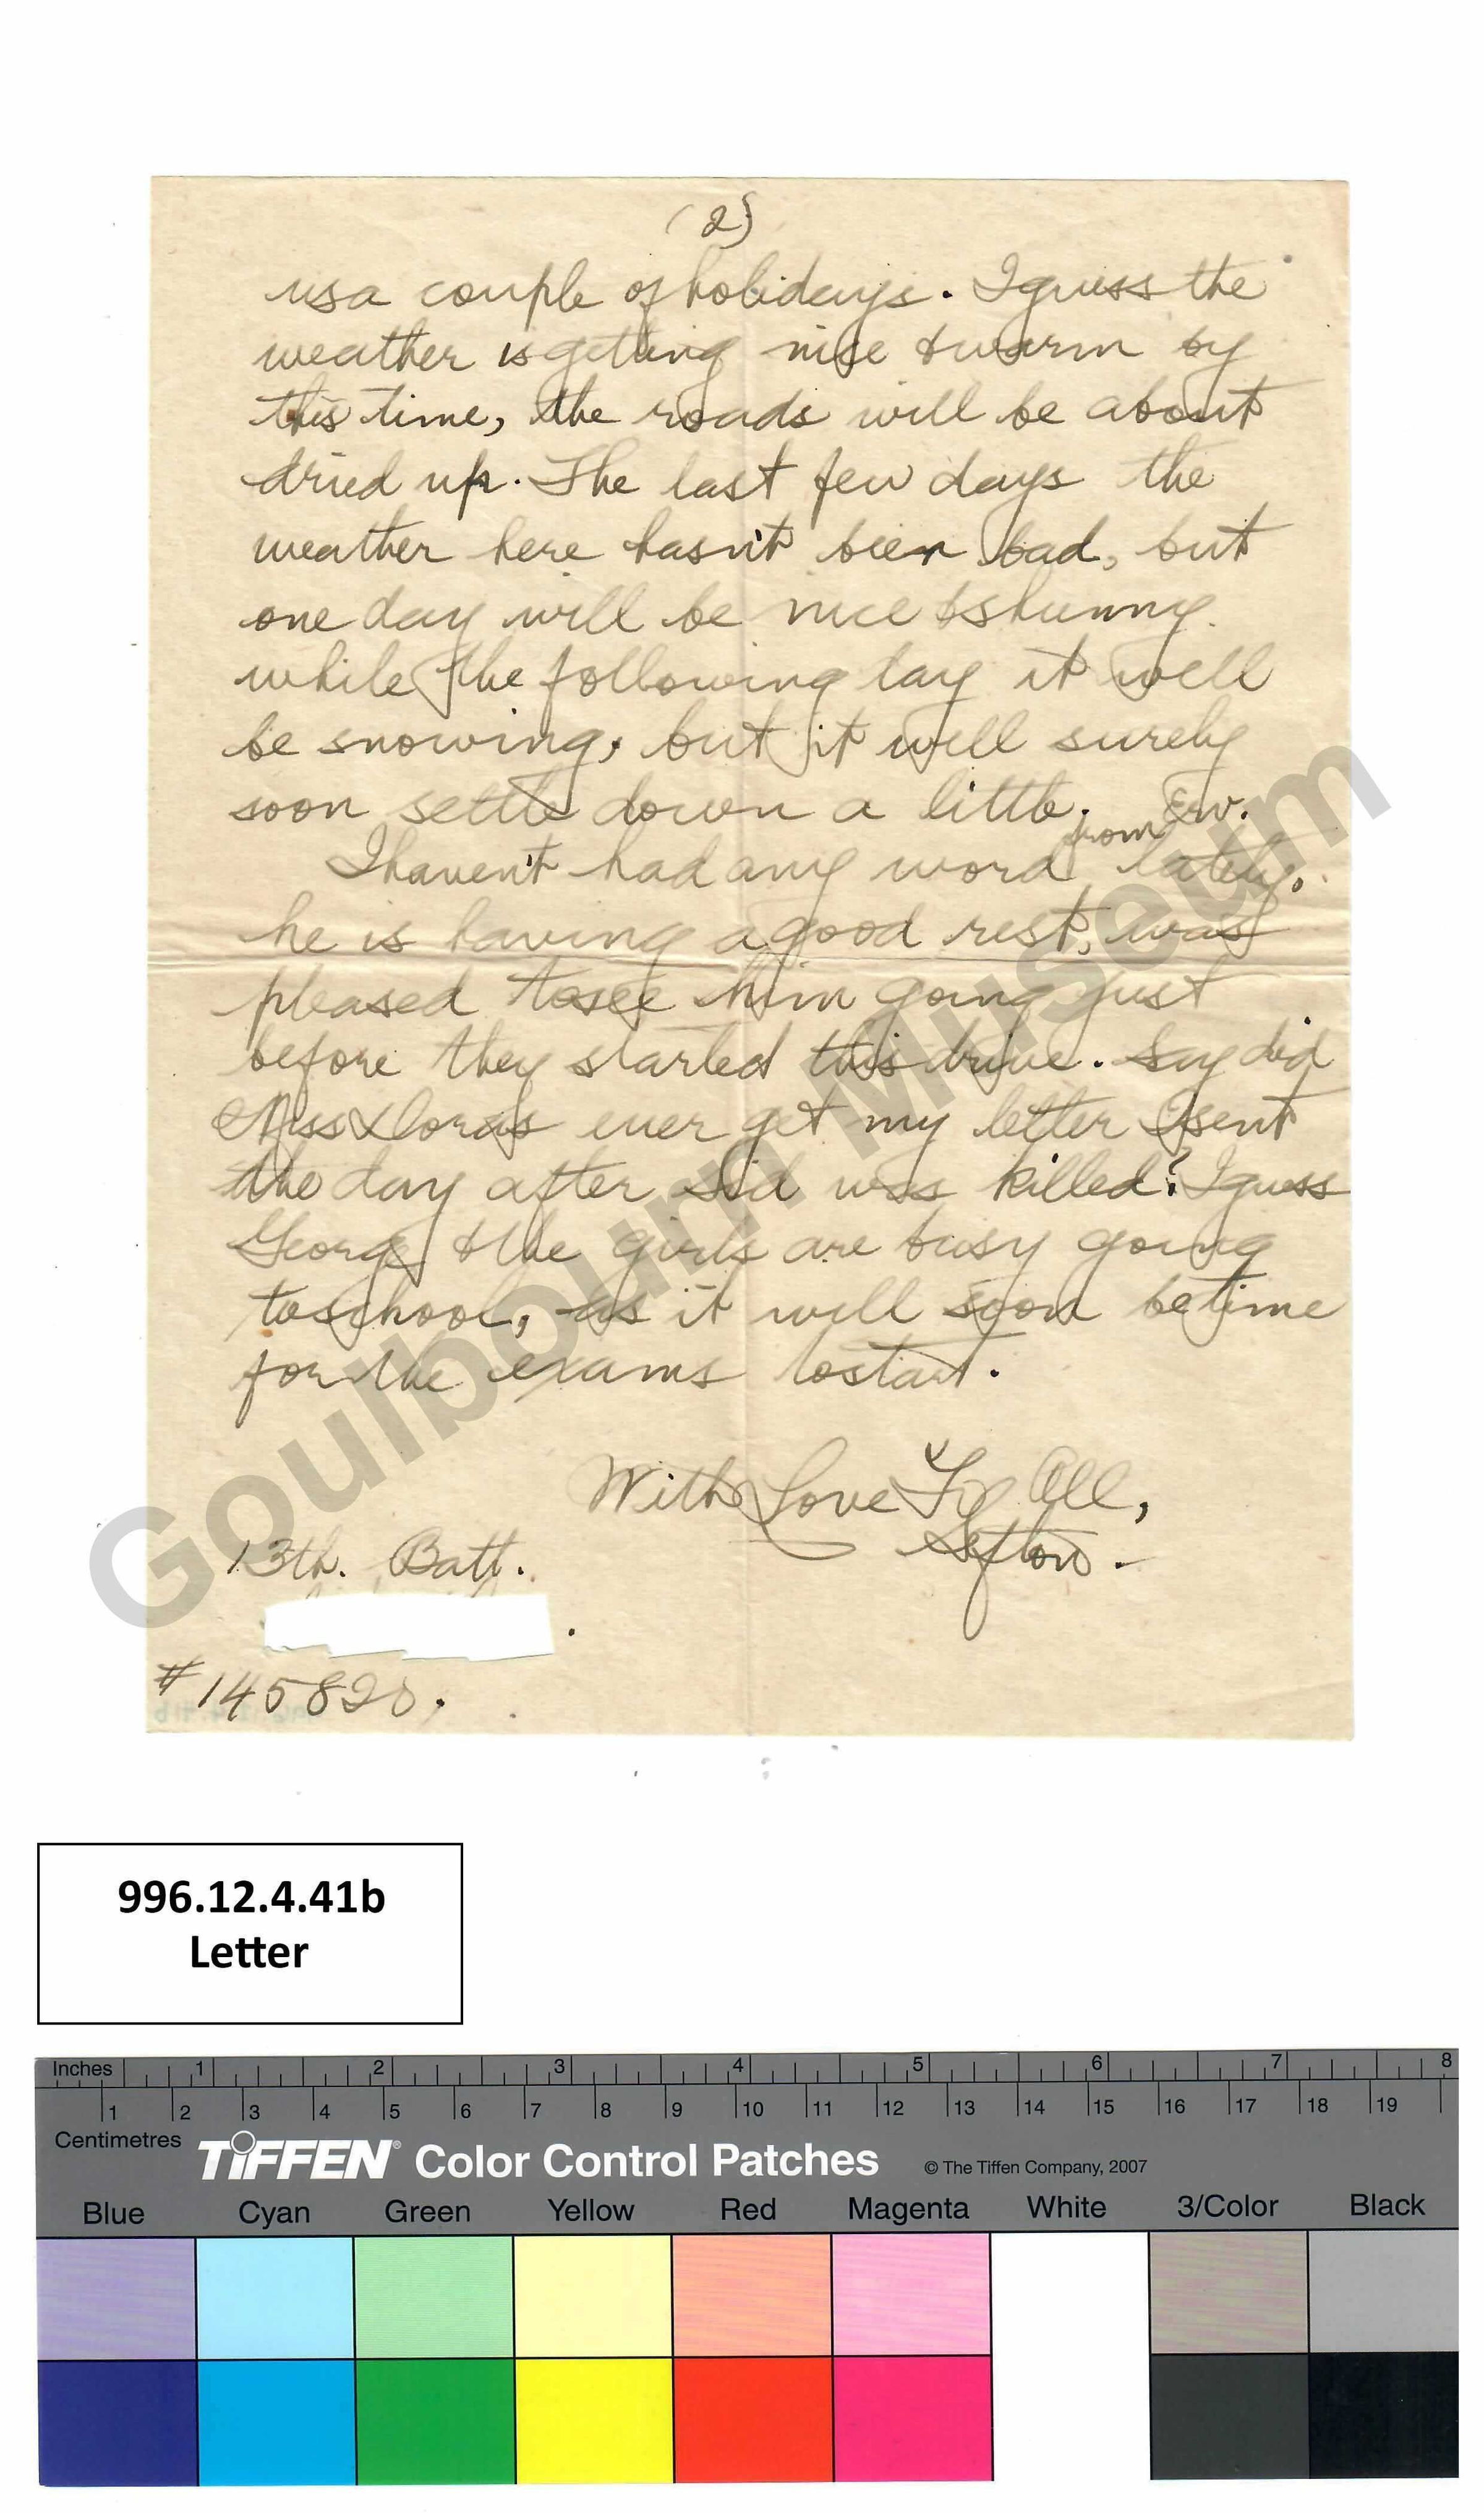 (2)
us a couple of holidays. I guess the
weather is getting nice & warm by
this time, the roads will be about
dried up. The last few days the
weather here hasn't been bad, but
one day will be nice & shunny
while the following day it will
be snowing, but it will surely
soon settle down a little. Erv.
I haven't had any word from lately,
he is having a good rest, was
pleased to see him going just
before they started this drive. Say did
Miss ever get my letter I sent
the day after Sid was killed? I guess
George & the girls are busy going
to school, as it will soon be time
for the exams to start.
With Love To All,
Sefton.
13th. Batt.
#145820.
Goulbourn Museum
996.12.4.41b
Letter
Inches 1 2 3 4 5 6 7 8
1 2 3 4 5 6 7 8 9 10 11 12 13 14 15 16 17 18 19
Centimetres
TIFFEN® Color Control Patches © The Tiffen Company, 2007
Blue Cyan Green Yellow Red Magenta White 3/Color Black